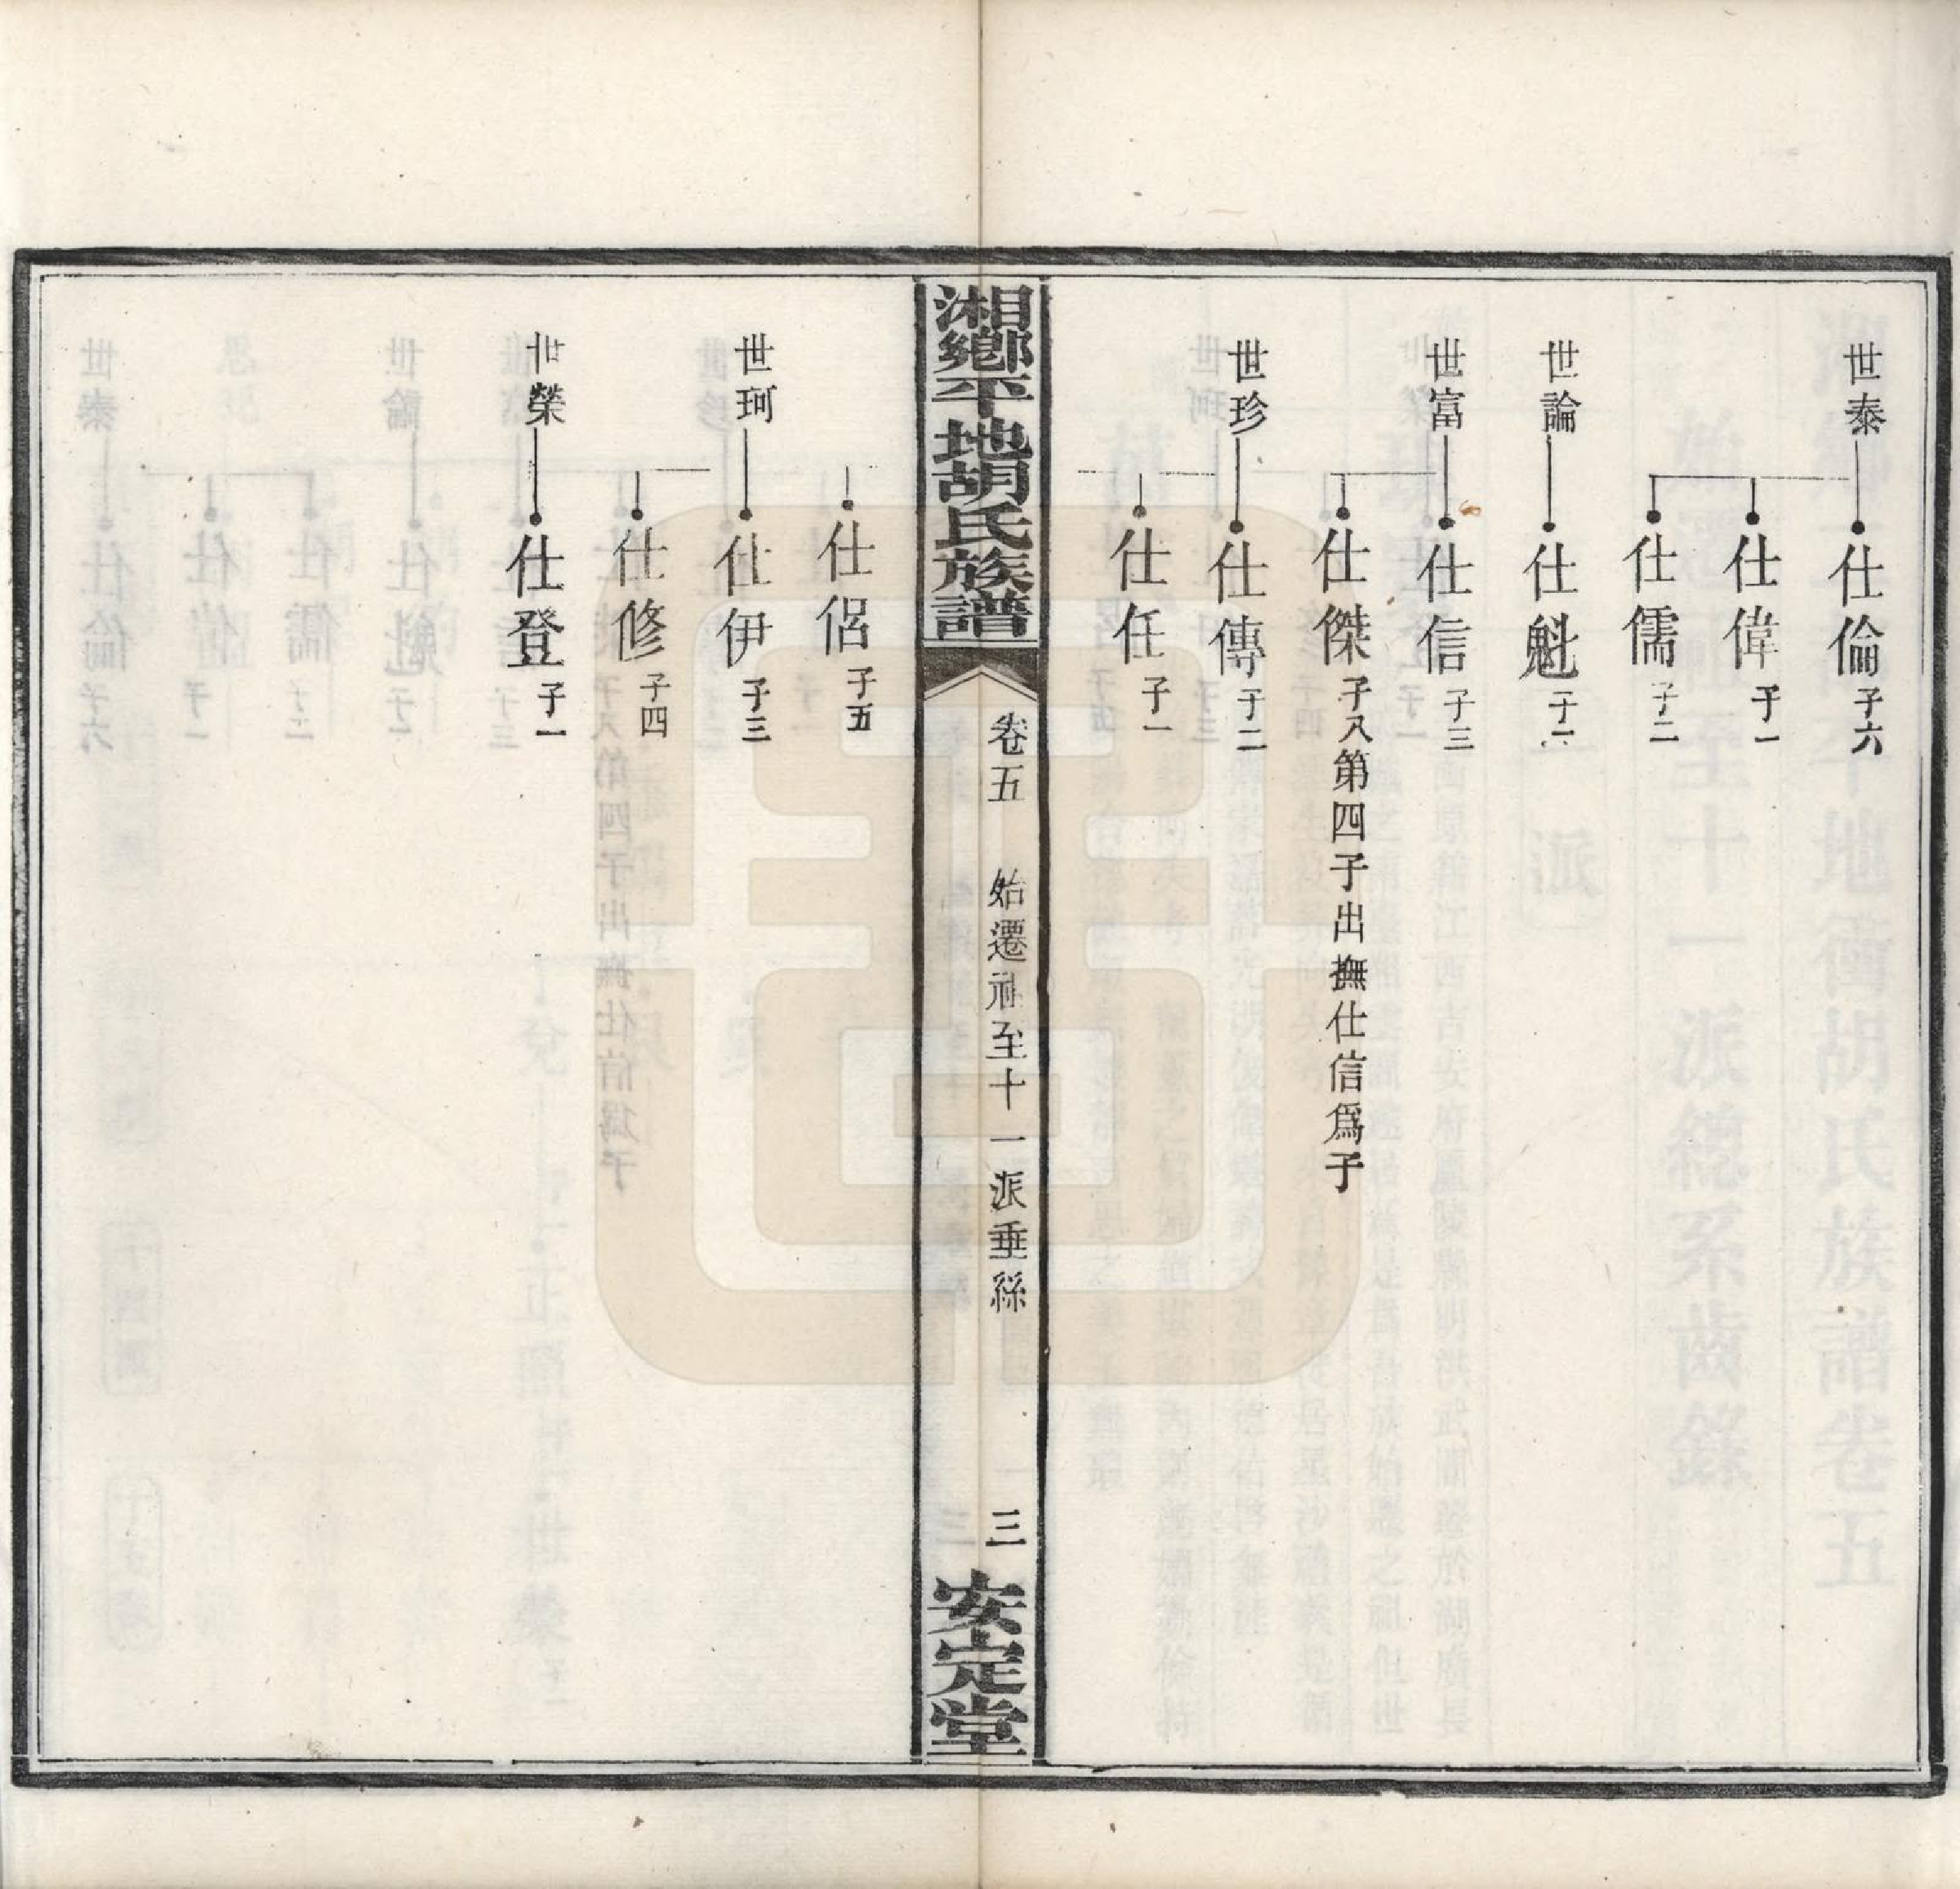 世泰 仕倫 子六
仕偉 子一
仕儒 子二
世論 仕魁 子二
世富 仕信 子三
仕傑 子八第四子出撫仕信爲子
世珍 仕傳 子二
仕任 子一
湘鄉平地胡氏族譜
卷五 始遷祖至十一派垂絲 三
安定堂
仕侶 子五
世珂 仕伊 子三
仕修 子四
世榮 仕登 子一